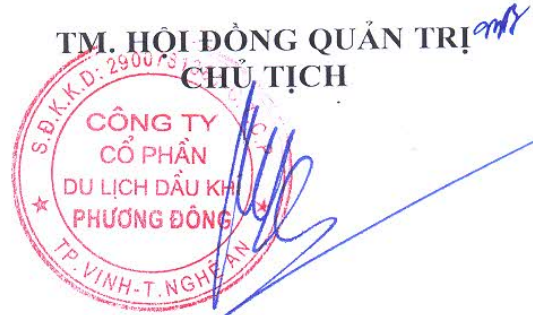 TM. HỘI ĐỒNG QUẢN TRỊ
CHỦ TỊCH
S.Đ.K.K.D:
CÔNG TY
CỔ PHẦN
DU LỊCH DẦU KHÍ
PHƯƠNG ĐÔNG
TP.VINH-T.NGHỆ AN